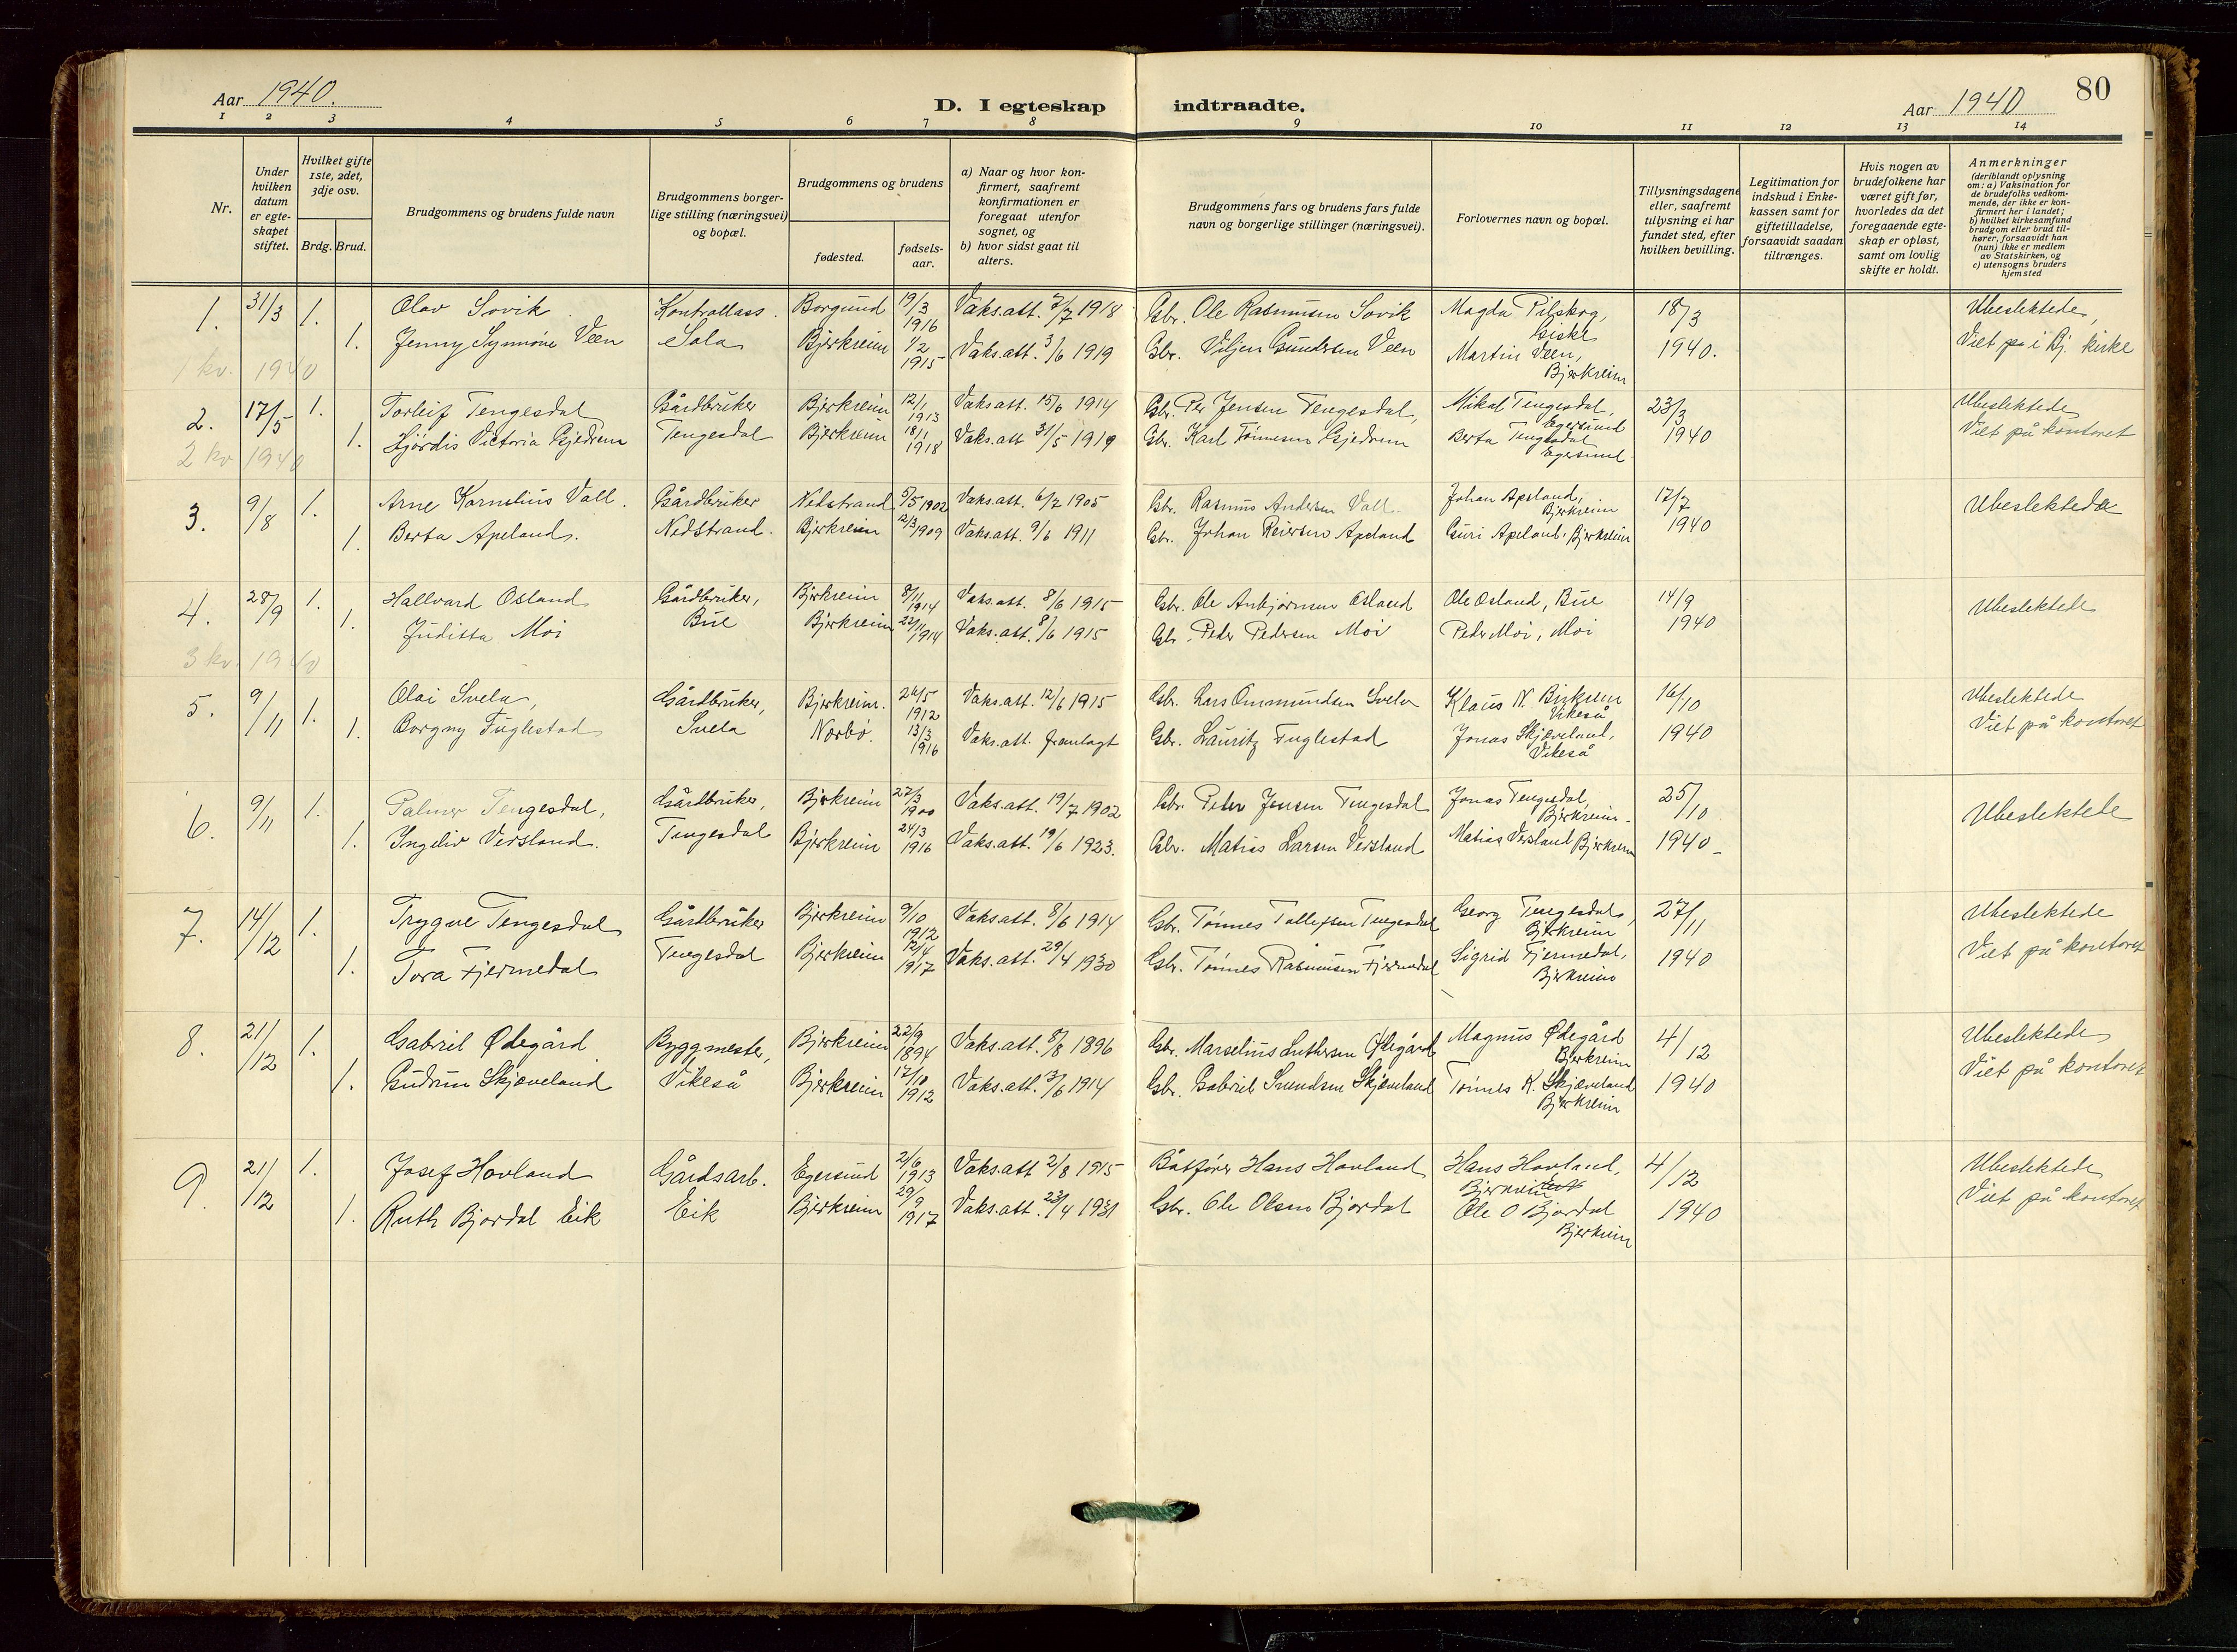 Aar 1940.
D. I egteskap indtraadte.
Aar 1940
80
1 2 3 4 5 6 7 8 9 10 11 12 13 14
Nr.
Under hvilken datum er egte-skapet stiftet.
Hvilket gifte 1ste, 2det, 3dje osv.
Brdg. Brud.
Brudgommens og brudens fulde navn
Brudgommens borger-lige stilling (næringsvei) og bopæl.
Brudgommens og brudens
fødested.
fødsels-aar.
a) Naar og hvor kon-firmert, saafremt konfirmationen er foregaat utenfor sognet, og
b) hvor sidst gaat til alters.
Brudgommens fars og brudens fars fulde navn og borgerlige stillinger (næringsvei).
Forlovernes navn og bopæl.
Tillysningsdagene eller, saafremt tillysning ei har fundet sted, efter hvilken bevilling.
Legitimation for indskud i Enke-kassen samt for giftetilladelse, forsaavidt saadan tiltrænges.
Hvis nogen av brudefolkene har været gift før, hvorledes da det foregaaende egte-skap er opløst, samt om lovlig skifte er holdt.
Anmerkninger (deriblandt oplysning om: a) Vaksination for de brudefolks vedkom-mende, der ikke er kon-firmert her i landet; b) hvilket kirkesamfund brudgom eller brud til-hører, forsaavidt han (hun) ikke er medlem av Statskirken, og c) utensogns bruders hjemsted
1. 31/3 1. Olav Sovik Kontrollass. Borgund 19/3 1916 Vaks.att. 7/7 1918 Gbr. Ole Rasmusen Sovik Magda Pilskog, Giske 18/3 Ubeslektede,
1. Jenny Synnöve Veen Sola Bjerkreim 1/2 1915 Vaks.att. 3/6 1919 Gbr. Viljen Gundersen Veen Martin Veen, Bjerkreim 1940. Viet i Bj. kirke
1 kv. 1940
2. 17/5 1. Torleif Tengesdal Gårdbruker Bjerkreim 12/1 1913 Vaks att. 15/6 1914 Gbr. Per Jensen Tengesdal, Mikal Tengesdal, Egersund 23/3 Ubeslektede
1. Hjördis Victoria Gjedrem Tengesdal Bjerkreim 18/1 1918 Vaks.att 31/5 1919 Gbr. Karl Tönnesen Gjedrem Berta Tengesdal Egersund 1940 Viet på kontoret
2 kv 1940
3. 9/8 1. Arne Kornelius Vall. Gårdbruker Nedstrand 5/5 1902 Vaks.att. 6/7 1905 Gbr. Rasmus Andersen Vall. Johan Apeland, Bjerkreim 17/7 Ubeslektede
1. Berta Apeland. Nedstrand. Bjerkreim 12/3 1909 Vaks.att. 9/6 1911 Gbr. Johan Reiersen Apeland Guri Apeland, Bjerkreim 1940
4. 28/9 1. Hallvard Osland Gårdbruker, Bjerkreim 8/11 1914 Vaks.att. 8/6 1915 Gbr. Ole Anbjørnsen Osland Ole Osland, Bue 14/9 Ubeslektede
1. Juditta Moi Bue Bjerkreim 22/11 1914 Vaks.att. 8/6 1915 Gbr. Peder Pedersen Moi Peder Moi, Moi 1940
3 kv. 1940
5. 9/11 1. Olai Svela, Gårdbruker, Bjerkreim. 26/5 1912 Vaks.att. 12/6 1915 Gbr. Lars Ommundsen Svela Klaus N. Birkrem Vikeså 16/10 Ubeslektede
1. Borgny Fuglestad Svela Nærbö. 13/3 1916 Vaks.att. framlagt Gbr. Lauritz Fuglestad Jonas Skjæveland, Vikeså 1940 Viet på kontoret
6. 9/11 1. Palmer Tengesdal, Gårdbruker, Bjerkreim 27/3 1900 Vaks.att. 19/7 1902 Gbr. Peder Jensen Tengesdal Jonas Tengesdal, Bjerkreim. 25/10 Ubeslektede
1. Ingeliv Versland. Tengesdal Bjerkreim 24/3 1916 Vaks.att. 19/6 1923. Gbr. Matias Larsen Versland Matias Versland Bjerkreim 1940
7. 14/12 1. Trygve Tengesdal Gårdbruker Bjerkreim 9/10 1912 Vaks att. 8/6 1914 Gbr. Tönnes Tollefsen Tengesdal Georg Tengesdal, Bjerkreim 27/11 Ubeslektede
1. Tora Fjermedal Tengesdal Bjerkreim 12/4 1917 Vaks.att. 29/4 1930 Gbr. Tönnes Rasmusen Fjermedal Sigrid Fjermedal, Bjerkreim 1940 Viet på kontoret
8. 21/12 1. Gabriel Ødegård Byggmester, Bjerkreim 22/9 1894 Vaks.att. 8/8 1896 Gbr. Marselius Luthersen Ødegård Magnus Ødegård Bjerkreim 4/12 Ubeslektede
1. Gudrun Skjæveland Vikeså Bjerkreim 17/10 1912 Vaks.att. 3/6 1914 Gbr. Gabriel Svendsen Skjæveland Tönnes K. Skjæveland Bjerkreim 1940 Viet på kontoret
9. 21/12 1. Josef Hovland Gårdsarb. Egersund 2/6 1913 Vaks.att 2/8 1915 Båtfører Hans Hovland Hans Hovland, Bjerkreim 4/12 Ubeslektede
1. Ruth Bjordal Eik Eik Bjerkreim 29/9 1917 Vaks.att. 23/4 1931 Gbr. Ole Olsen Bjordal Ole O Bjordal Bjerkreim 1940 Viet på kontoret